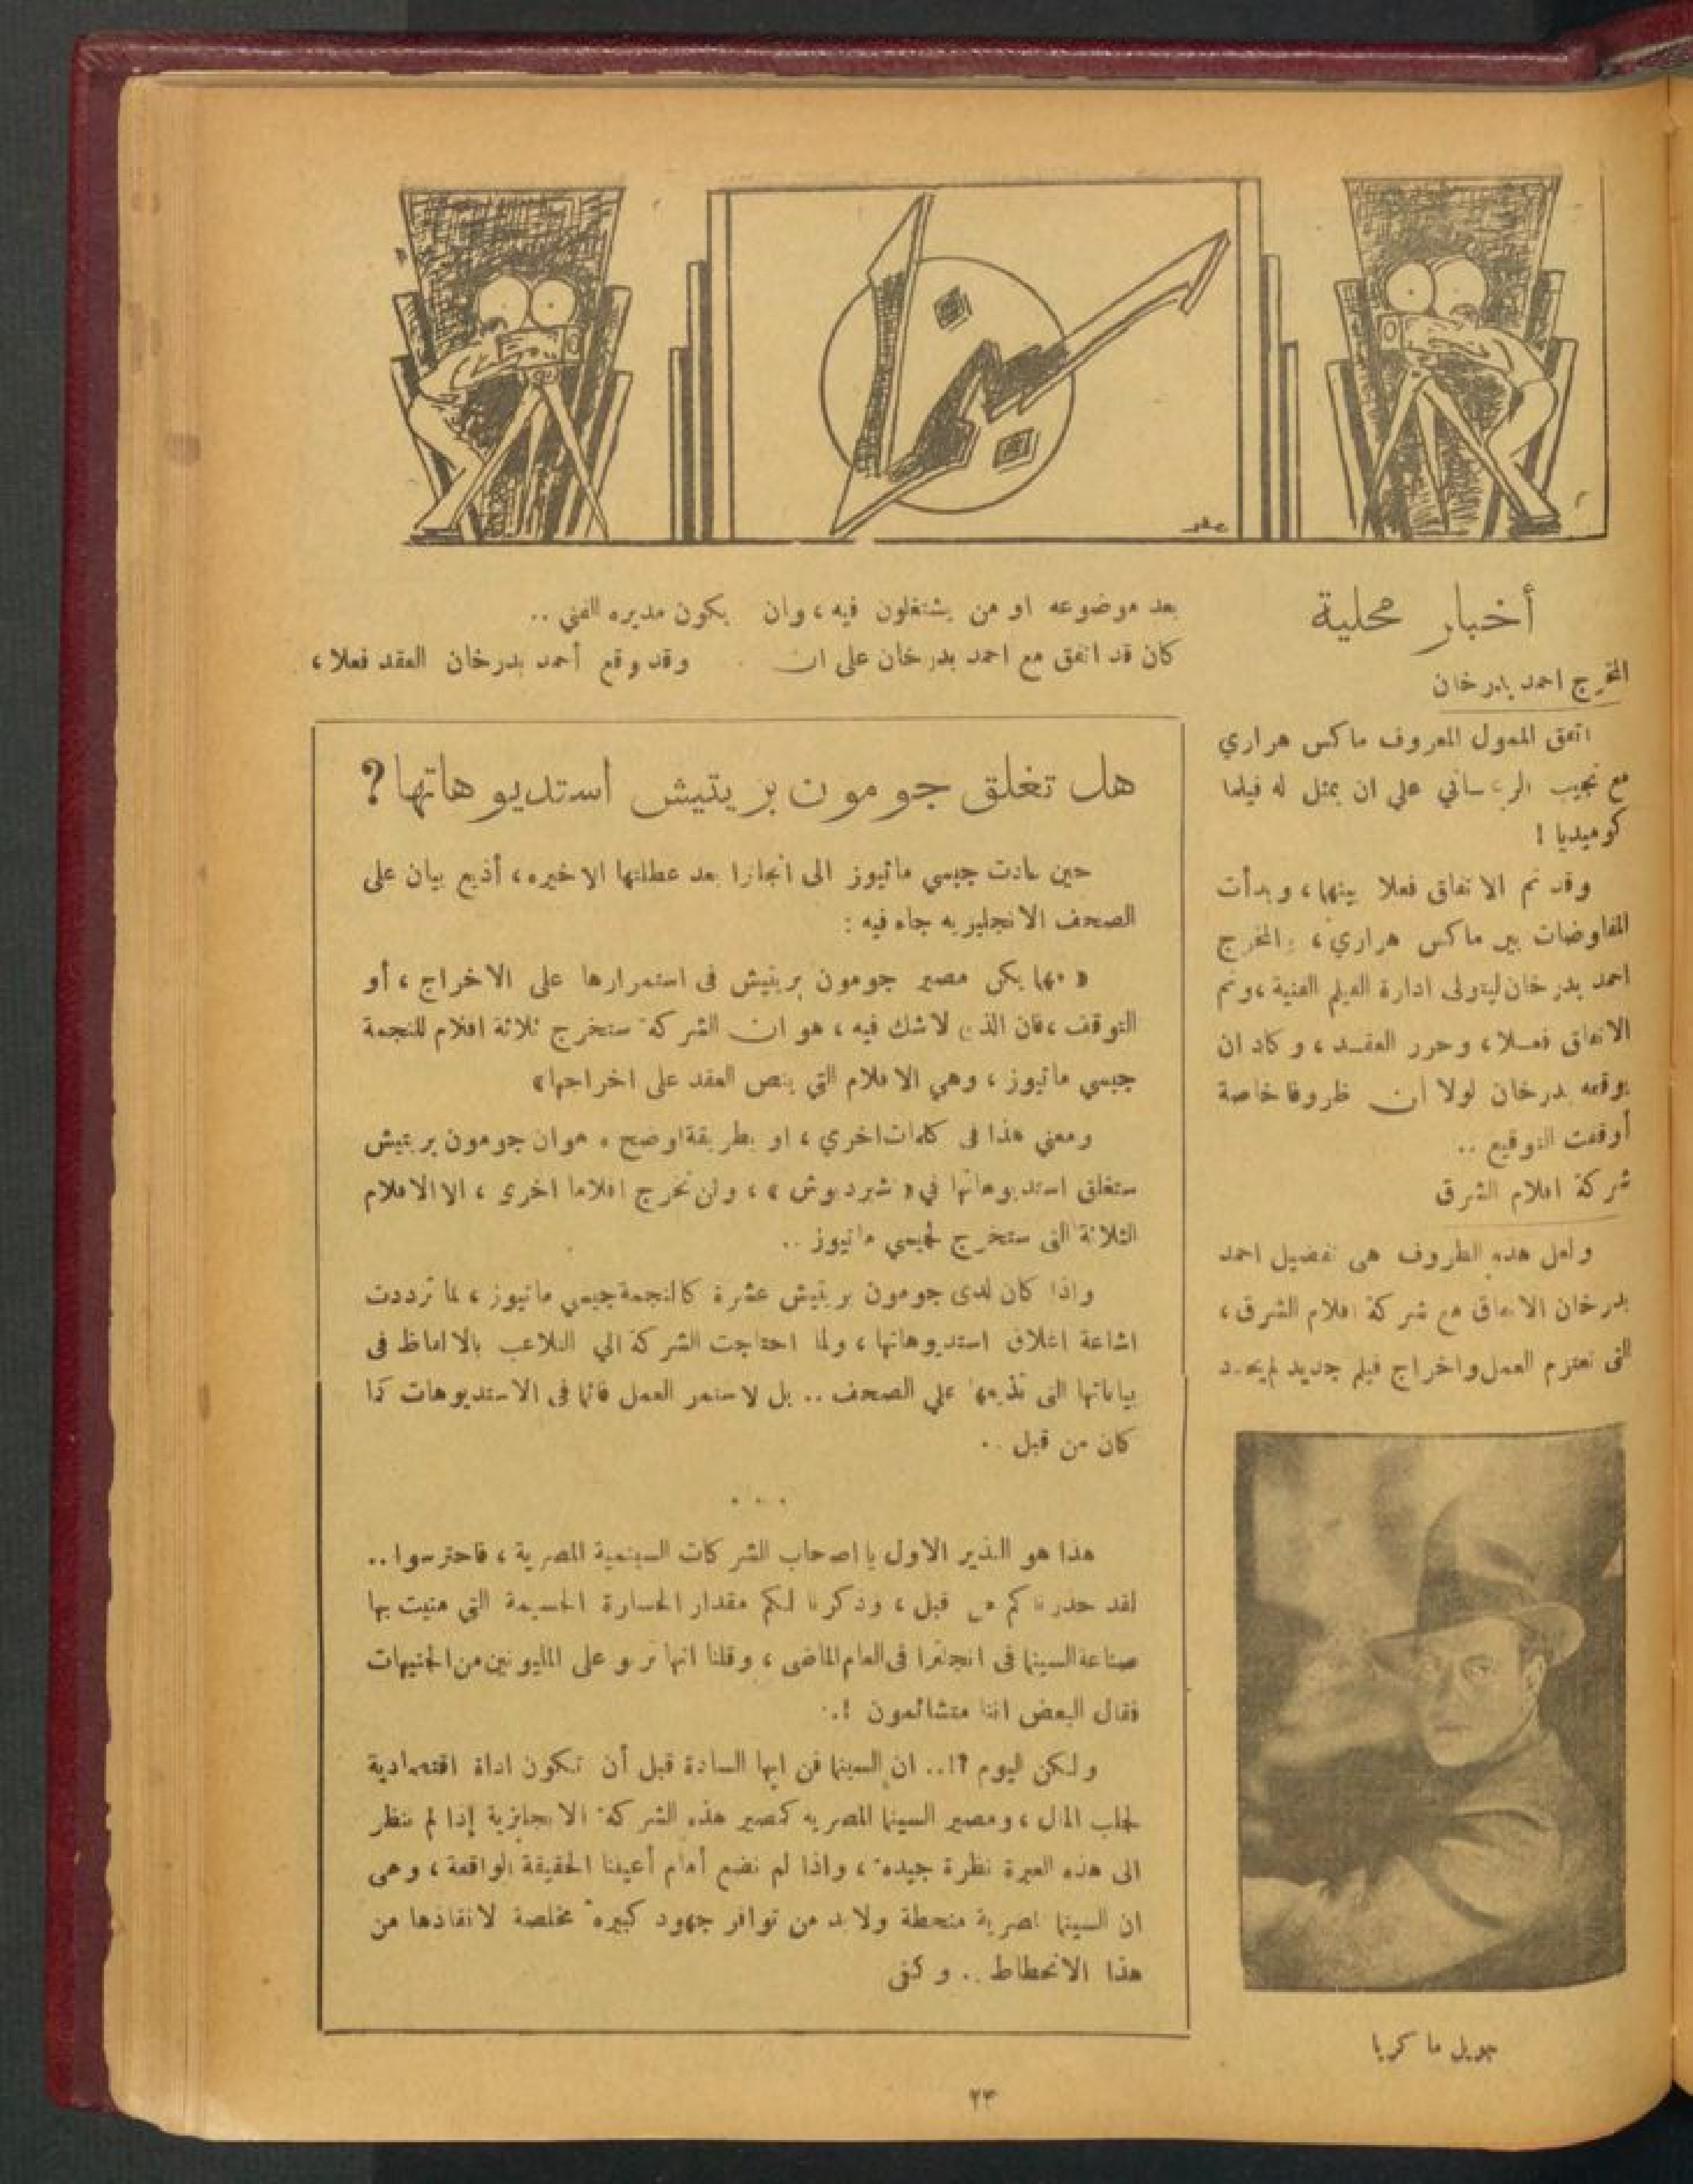 سينما
أخبار محلية
المخرج احمد بدرخان
اتفق الممول المعروف ماكس هراري
مع نجيب الريحاني علي ان يمثل له فيلما
كوميديا !
وقد تم الاتفاق فعلا بينهما ، وبدأت
المفاوضات بين ماكس هراري ، والمخرج
احمد بدرخان ليتولى ادارة الفيلم الفنية ، وتم
الاتفاق فعلا ، وحرر العقد ، وكاد ان
يوقعه بدرخان لولا أن ظروفا خاصة
أوقفت التوقيع ..
شركة افلام الشرق
ولعل هذه الظروف هى تفضيل احمد
بدرخان الاتفاق مع شركة افلام الشرق ،
التى تعتزم العمل واخراج فيلم جديد لم يحدد
بعد موضوعه او من يشتغلون فيه ، وان
كان قد اتفق مع احمد بدرخان على ان
يكون مديره الفني ..
وقد وقع أحمد بدرخان العقد فعلا ،
هل تغلق جومون بريتيش استديوهاتها ؟
حين عادت جيسي ماتيوز الى انجلترا بعد عطلتها الاخيره ، أذيع بيان على
الصحف الانجليزيه جاء فيه :
« مهما يكن مصير جومون بريتيش فى استمرارها على الاخراج ، أو
التوقف ، فان الذي لا شك فيه ، هو ان الشركة ستخرج ثلاثة افلام للنجمة
جيسي ماتيوز ، وهي الافلام التي ينص العقد على اخراجها »
ومعني هذا فى كلمات اخري ، او بطريقة اوضح ، هو ان جومون بريتيش
ستغلق استديوهاتها في « شبردبوش » ، ولن تخرج افلاما اخرى ، الا الافلام
الثلاثة التى ستخرج لجيسي ماتيوز ..
واذا كان لدى جومون بريتيش عشرة كالنجمة جيسي ماتيوز ، لما ترددت
اشاعة اغلاق استديوهاتها ، ولما احتاجت الشركة الي التلاعب بالالفاظ فى
بياناتها التى تذيعها علي الصحف .. بل لاستمر العمل قائما فى الاستديوهات كما
كان من قبل ..
. . .
هذا هو النذير الاول يا اصحاب الشركات السينمية المصرية ، فاحترسوا ..
لقد حذرناكم من قبل ، وذكرنا لكم مقدار الخسارة الجسيمة التى منيت بها
صناعة السينما فى انجلترا فى العام الماضى ، وقلنا انها تربو على المليونين من الجنيهات
فقال البعض اننا متشائمون ! ..
ولكن اليوم ؟! .. ان السينما فن ايها السادة قبل أن تكون اداة اقتصادية
لجلب المال ، ومصير السينما المصريه كمصير هذه الشركة الانجليزية إذا لم ننظر
الى هذه العبرة نظرة جيده ، واذا لم نضع أمام أعيننا الحقيقة الواقعة ، وهى
ان السينما المصرية منحطة ولا بد من توافر جهود كبيره مخلصة لانقاذها من
هذا الانحطاط .. وكفى
جويل ماكريا
٢٣